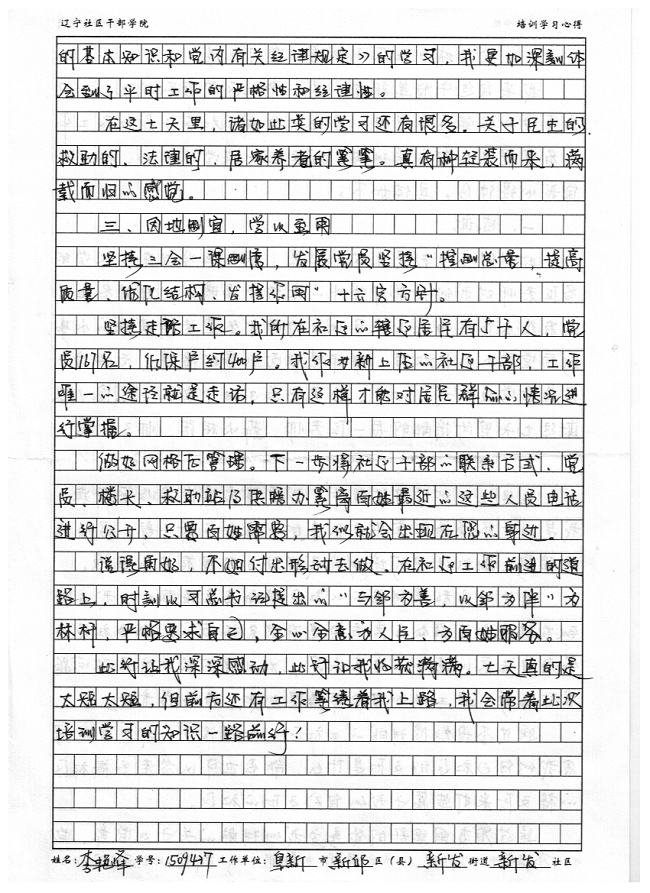 辽宁社区干部学院 培训学习心得
的基本知识和党内有关经律规定》的学习，我更加深刻体
会到了平时工作的严格性和经律性。
在这七天里，诸如此类的学习还有很多。关于民生的
救助的、法律的，居家养老的等等。真有种轻装而来，满
载而归的感觉。
三、因地制宜，学以至用
坚持三会一课制度，发展党员坚持“控制总量，提高
质量、优化结构、发挥作用”十六字方针。
坚持走访工作。我所在社区的辖区居民有5千人，党
员167名，低保户约400户。我作为新上任的社区干部，工作
唯一的途径就是走访，只有这样才能对居民群众的情况进
行掌握。
做好网格态管理。下一步将社区干部的联系方式、党
员、楼长、救助站及供暖办等离百姓最近的这些人员电话
进行公开，只要百姓需要，我们就会出现在您的身边。
说得再好，不如付出形动去做。在社区工作前进的道
路上，时刻以习总书记提出的“与邻为善，以邻为伴”为
标杆，严格要求自己，全心全意为人民，为百姓服务。
此行让我深深感动，此行让我收获满满。七天真的是
太短太短，但前方还有工作等待着我上路，我会带着此次
培训学习的知识一路前行！
姓名：李艳泽 学号：1509437 工作单位：阜新 市 新邱 区（县） 新发 街道 新发 社区